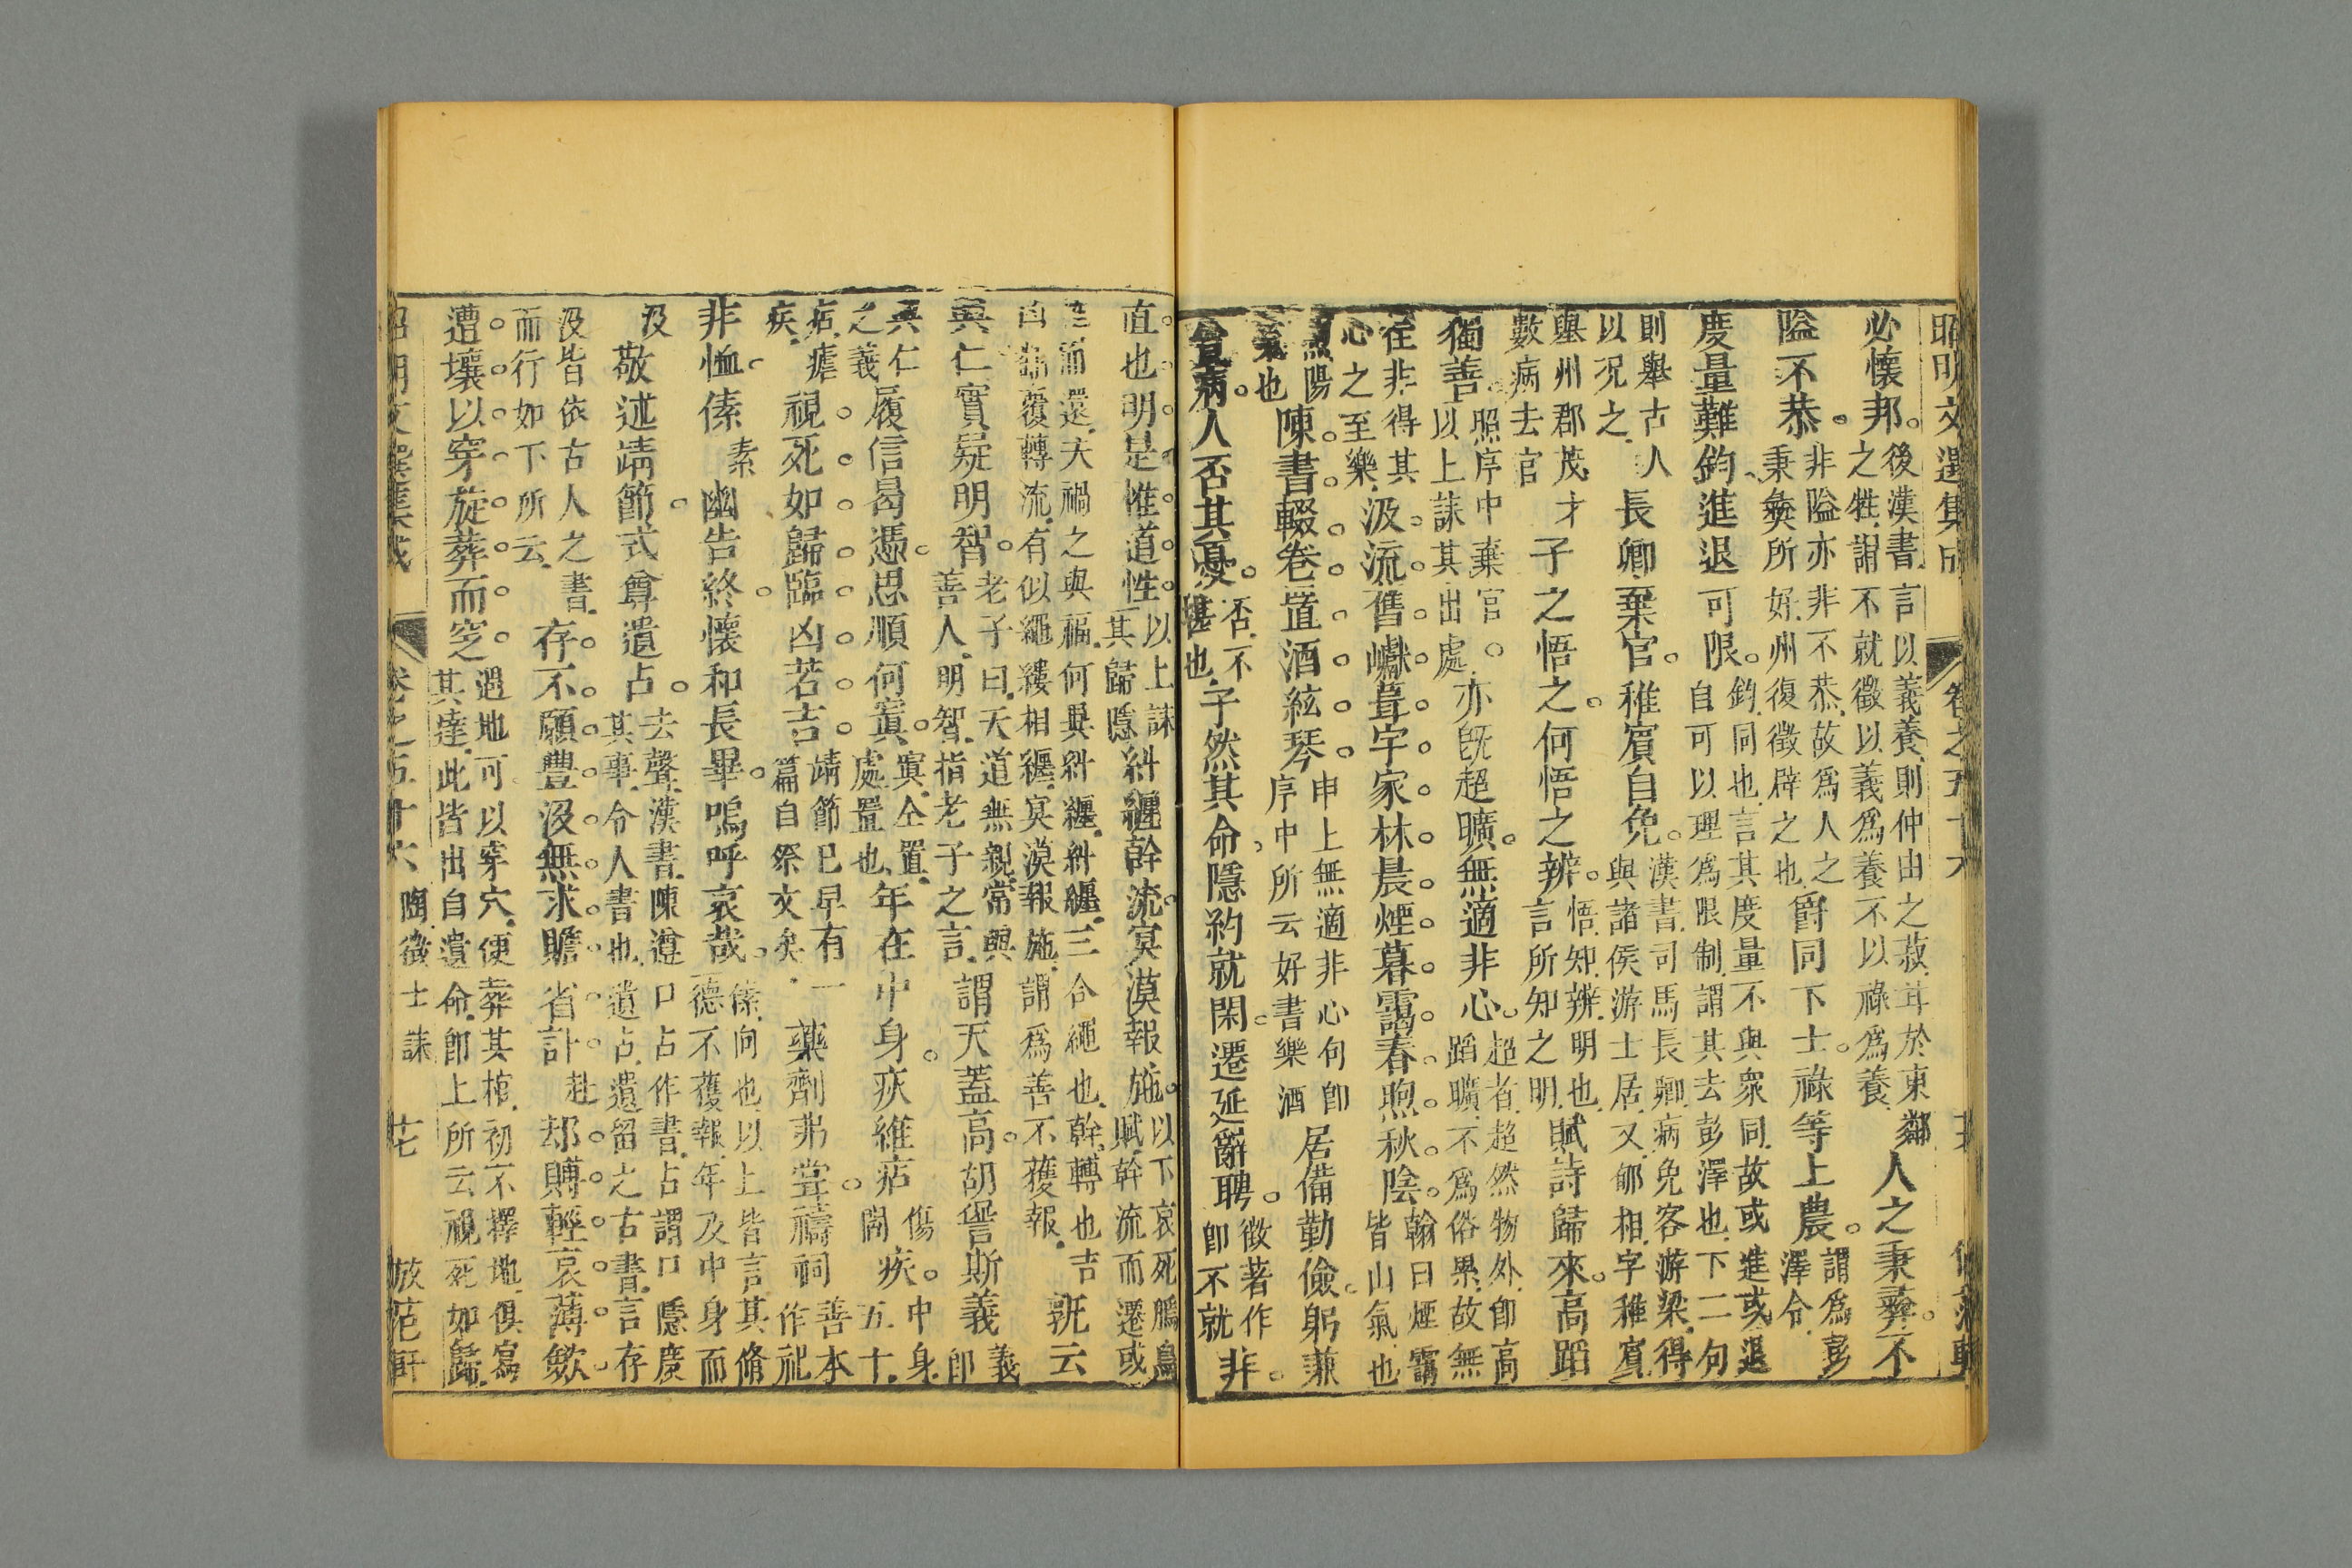 昭明文選集成 卷之五十六
必懷邦後漢書言以義養則仲由之菽甘於東鄰之牲謂不就徵以義為養不以祿為養人之秉彝不
隘不恭非隘亦非不恭故為人之秉彝所好州復徵辟之也爵同下士祿等上農謂為彭澤令
度量難鈞進退可限鈞同也言其度量不與眾同故或進或退自可以理為限制謂其去彭澤也下二句
則舉古人以況之長卿棄官稚賓自免漢書司馬長卿病免客游梁得與諸侯游士居又郇相字稚賓
舉州郡茂才數病去官子之悟之何悟之辨悟知辨明也言所知之明賦詩歸來高蹈
獨善照序中棄官以上誄其出處亦既超曠無適非心超者超然物外即高蹈曠不為俗累故無
往非得其心之至樂汲流舊巘葺宇家林晨煙暮靄春煦秋陰翰曰煙靄皆山氣也
煦陽氣也陳書輟卷置酒絃琴申上無適非心句即序中所云好書樂酒居備勤儉躬兼
貧病人否其憂否不堪也子然其命隱約就閑遷延辭聘徵著作即不就非
直也明是惟道性以上誄其隱歸糾纆幹流冥漠報施以下哀死鵩鳥賦幹流而遷或
推而還夫禍之與福何異糾纆糾纆三合繩也幹轉也吉凶翻覆轉流有似繩纆相纏冥漠報施謂為善不獲報孰云
與仁實疑明智老子曰天道無親常與善人明智指老子之言謂天蓋高胡諐斯義義即
與仁之義履信曷憑思順何寘寘仝置處置也年在中身疢維痁傷疾中身五十
痁瘧疾視死如歸臨凶若吉靖節巳早有自祭文矣一篇藥劑弗嘗禱祠非恤善本作祀
傃素幽告終懷和長畢嗚呼哀哉傃向也以上皆言其脩德不獲報年及中身而
沒敬述靖節式尊遺占去聲漢書陳遵口占作書占謂口隱度其事令人書也遺占遺留之占書言存
沒皆依古人之書而行如下所云存不願豐沒無求贍省訃赴却賻輕哀薄斂
遭壤以穿旋葬而窆遇地可以穿穴便葬其棺初不擇地俱寫其達此皆出自遺命即上所云視死如歸
昭明文選集成 卷之五十六 陶徵士誄 倣范軒